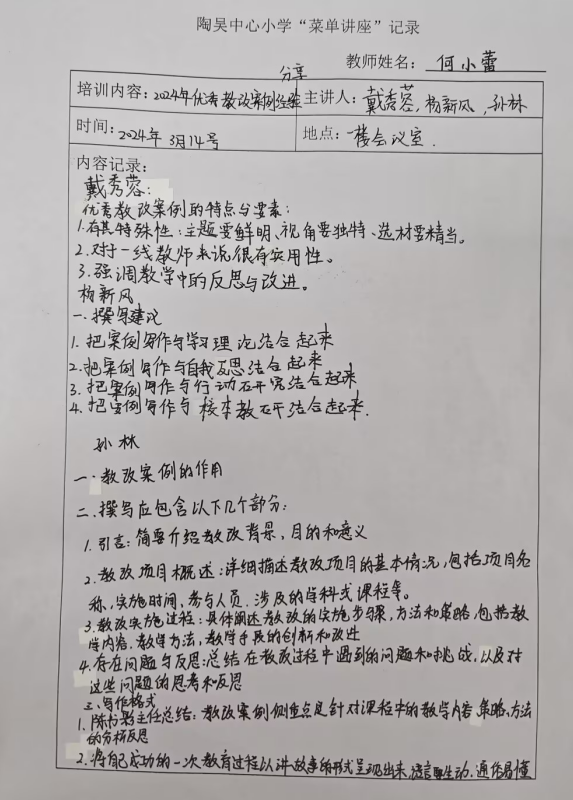 陶吴中心小学“菜单讲座”记录
教师姓名：何小蕾
分享
培训内容：2024年优秀教改案例经验 主讲人：戴秀蓉，杨新风，孙林
时间：2024年 3月14号 地点：一楼会议室．
内容记录：
戴秀蓉：
优秀教改案例的特点与要素：
1.有其特殊性：主题要鲜明、视角要独特、选材要精当。
2.对于一线教师来说很有实用性。
3.强调教学中的反思与改进。
杨新风
一.撰写建议
1.把案例写作与学习理论结合起来
2.把案例写作与自我反思结合起来
3.把案例写作与行动研究结合起来
4.把案例写作与校本教研结合起来．
孙林
一.教改案例的作用
二.撰写应包含以下几个部分：
1.引言：简要介绍教改背景，目的和意义
2.教改项目概述：详细描述教改项目的基本情况，包括项目名
称，实施时间，参与人员．涉及的学科或课程等。
3.教改实施过程：具体阐述教改的实施步骤，方法和策略，包括教
学内容．教学方法，教学手段的创新和改进
4.存在问题与反思：总结在教改过程中遇到的问题和挑战，以及对
这些问题的思考和反思
三.写作格式
1.陈主任总结：教改案例侧重点是针对课程中的教学内容 策略、方法
的分析反思
2.将自己成功的一次教育过程以讲故事的形式呈现出来，语言要生动．通俗易懂